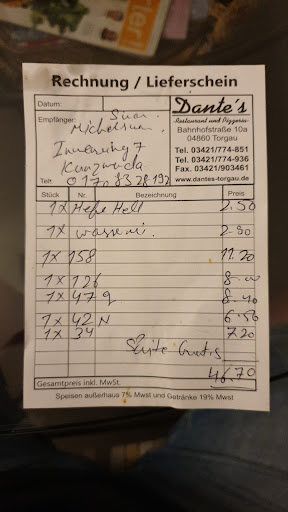 Rechnung / Lieferschein
Datum:
Dante's
Restaurant und Pizzeria
Bahnhofstraße 10a
04860 Torgau
Empfänger:
Tel. 03421/774-851
Tel. 03421/774-936
Fax. 03421/903461
www.dantes-torgau.de
7
Tel.: 0170 83 28 192
Stück Nr. Bezeichnung Preis
1x Hefe Hell 2.50
1x 2.90
1x 158 11.20
1x 126 8.00
1x 47 8.40
1x 42 N 6.50
1x 34 7.20
Gratis
46.70
Gesamtpreis inkl. MwSt.
Speisen außerhaus 7% Mwst und Getränke 19% Mwst